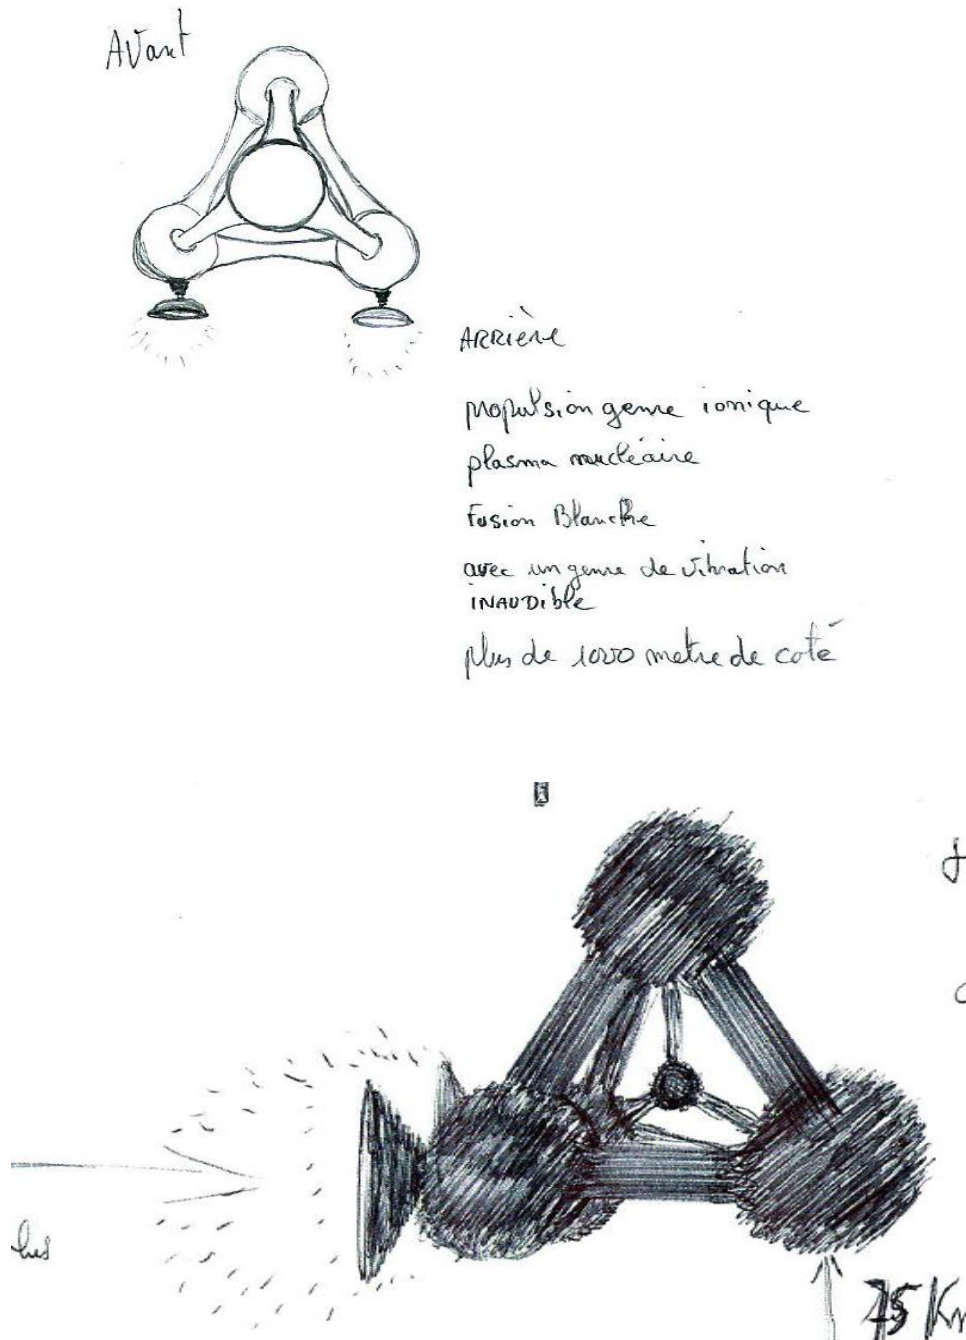 Avant
ARRière
propulsion genre ionique
plasma nucléaire
Fusion Blanche
avec un genre de vibration
INAUDible
plus de 1000 metre de coté
75 Km